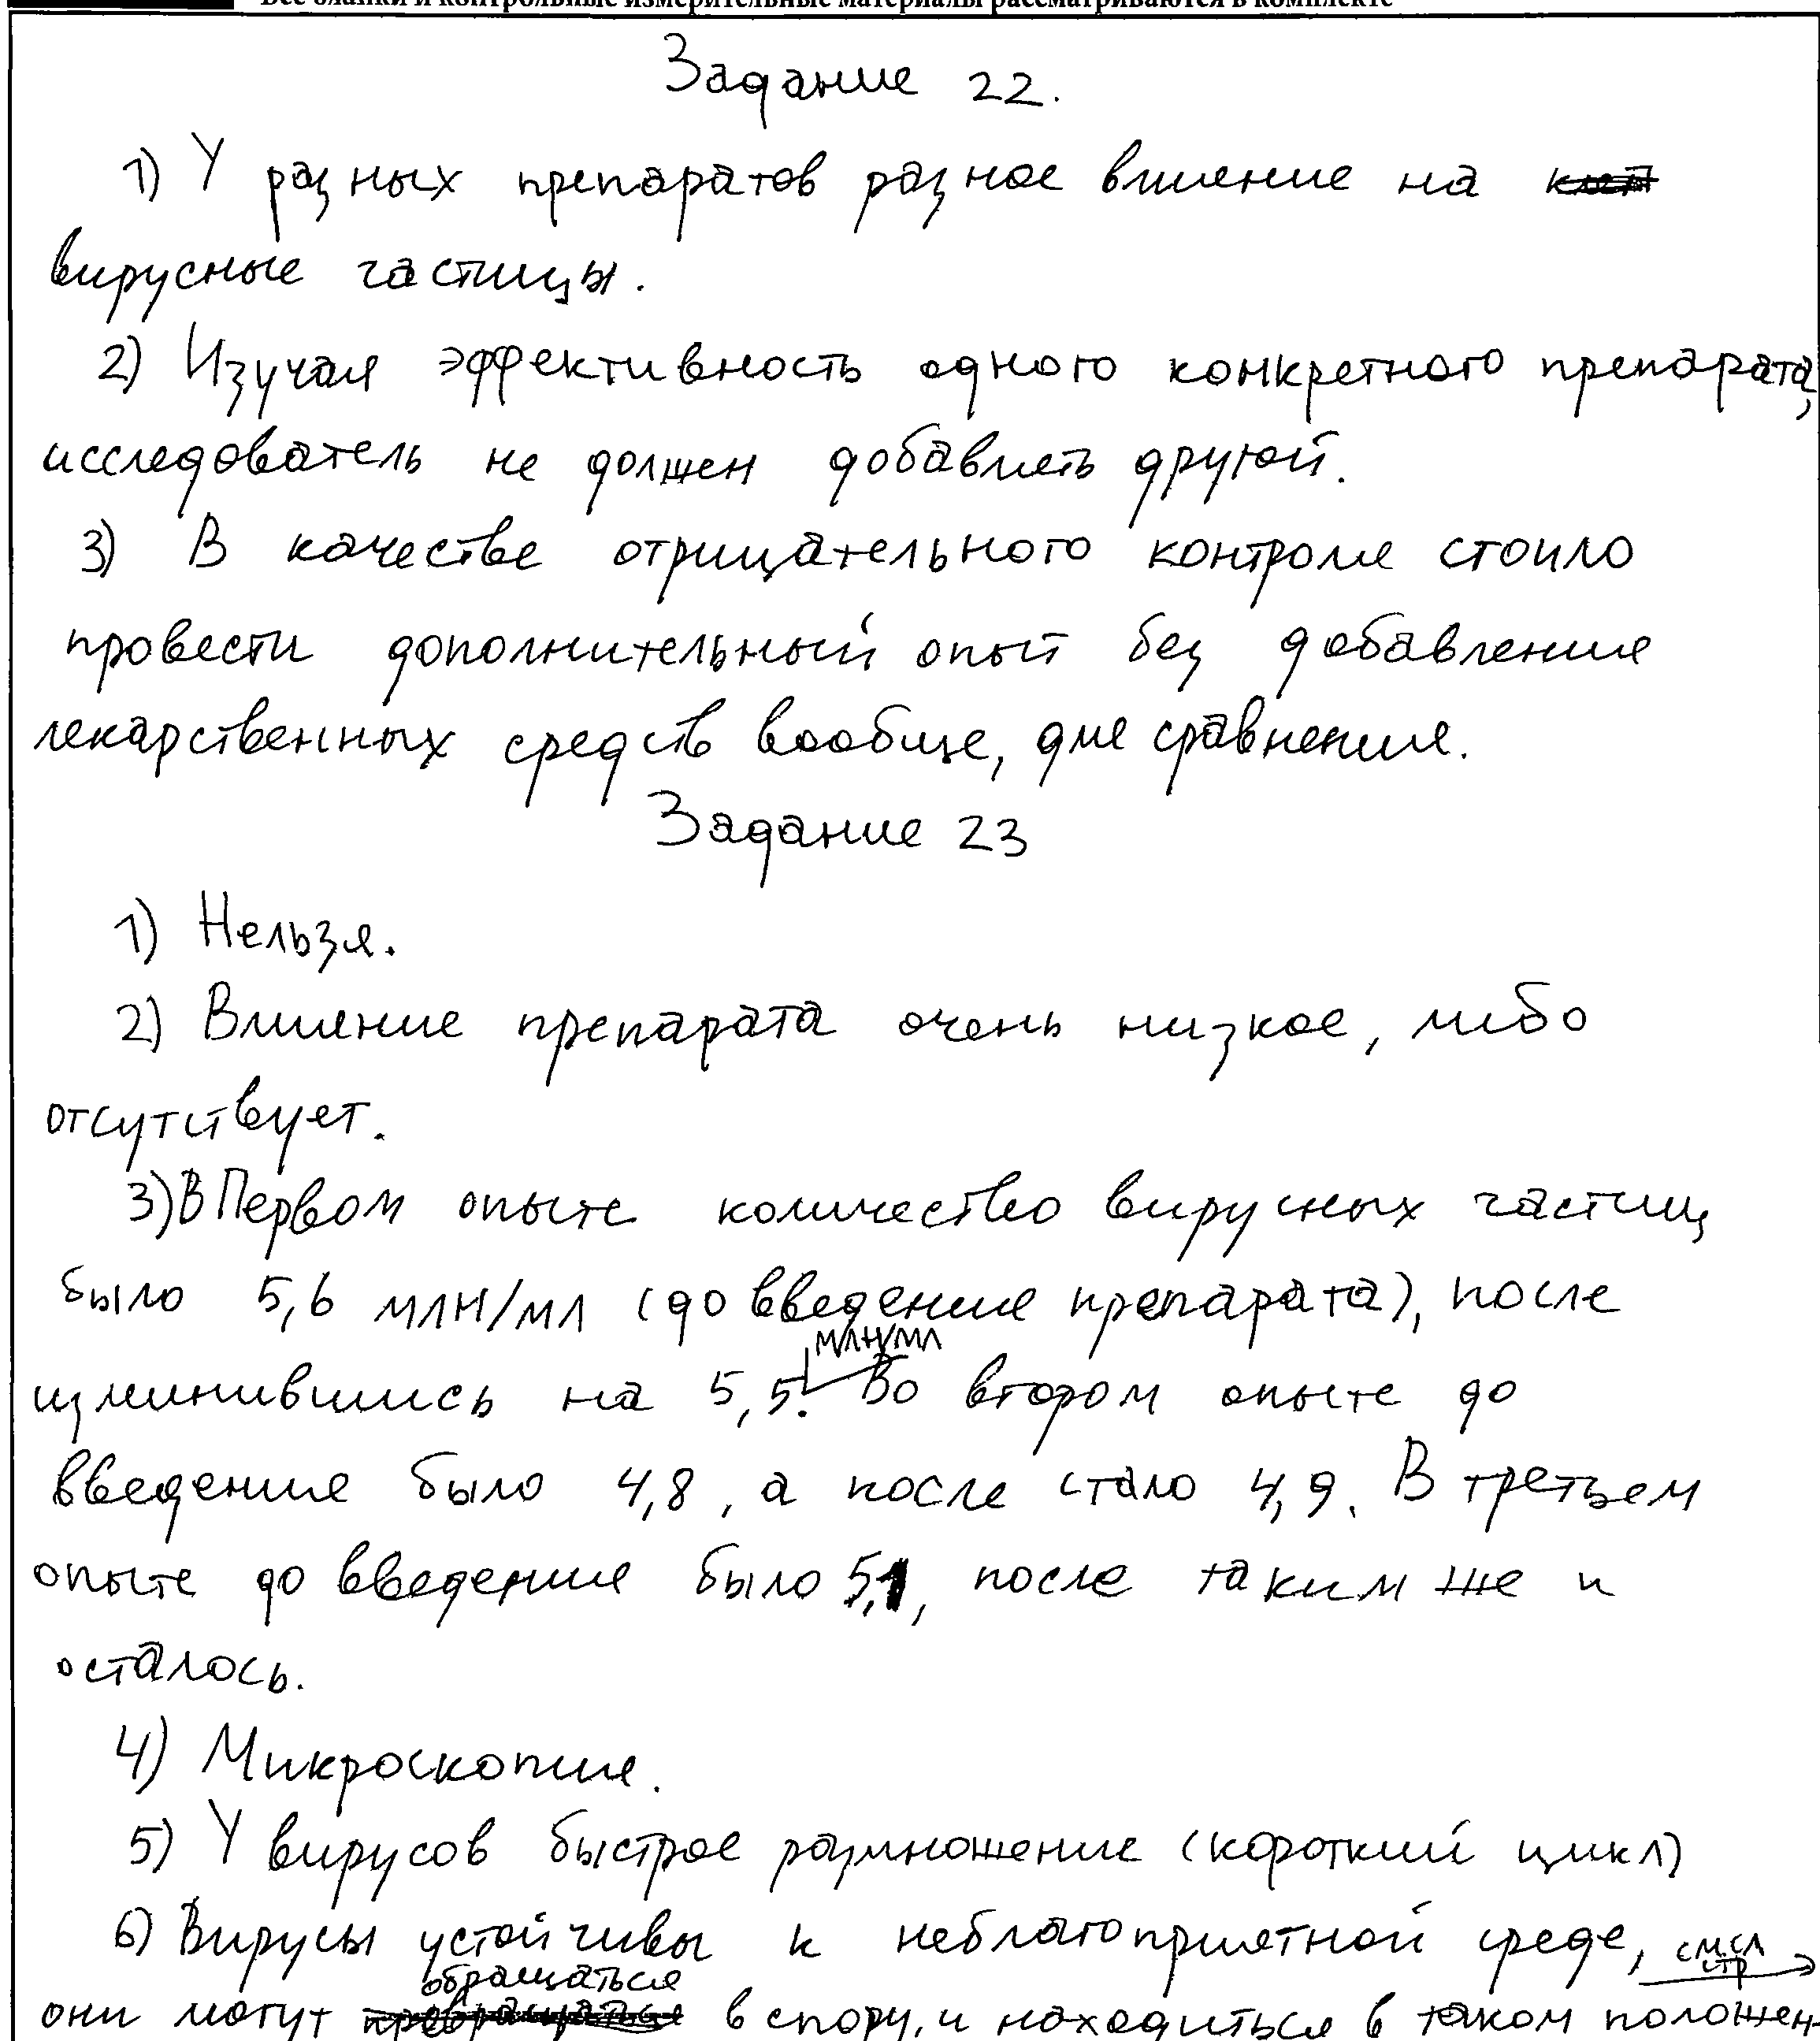 Все бланки и контрольные измерительные материалы рассматриваются в комплекте
Задание 22.
1) У разных препаратов разное влияние на
вирусные частицы.
2) Изучая эффективность одного конкретного препарата,
исследователь не должен добавлять другой.
3) В качестве отрицательного контроля стоило
провести дополнительный опыт без добавления
лекарственных средств вообще, для сравнения.
Задание 23
1) Нельзя.
2) Влияние препарата очень низкое, либо
отсутствует.
3) В Первом опыте количество вирусных частиц
было 5,6 млн/мл (до введения препарата), после
млн/мл
изминившись на 5,5. Во втором опыте до
введения было 4,8, а после стало 4,9. В третьем
опыте до введения было 5,1, после таким же и
осталось.
4) Микроскопия.
5) У вирусов быстрое размножение (короткий цикл)
6) Вирусы устойчивы к неблагоприятной среде, см.сл стр
обращаться
они могут превращаться в спору, и находиться в таком положен